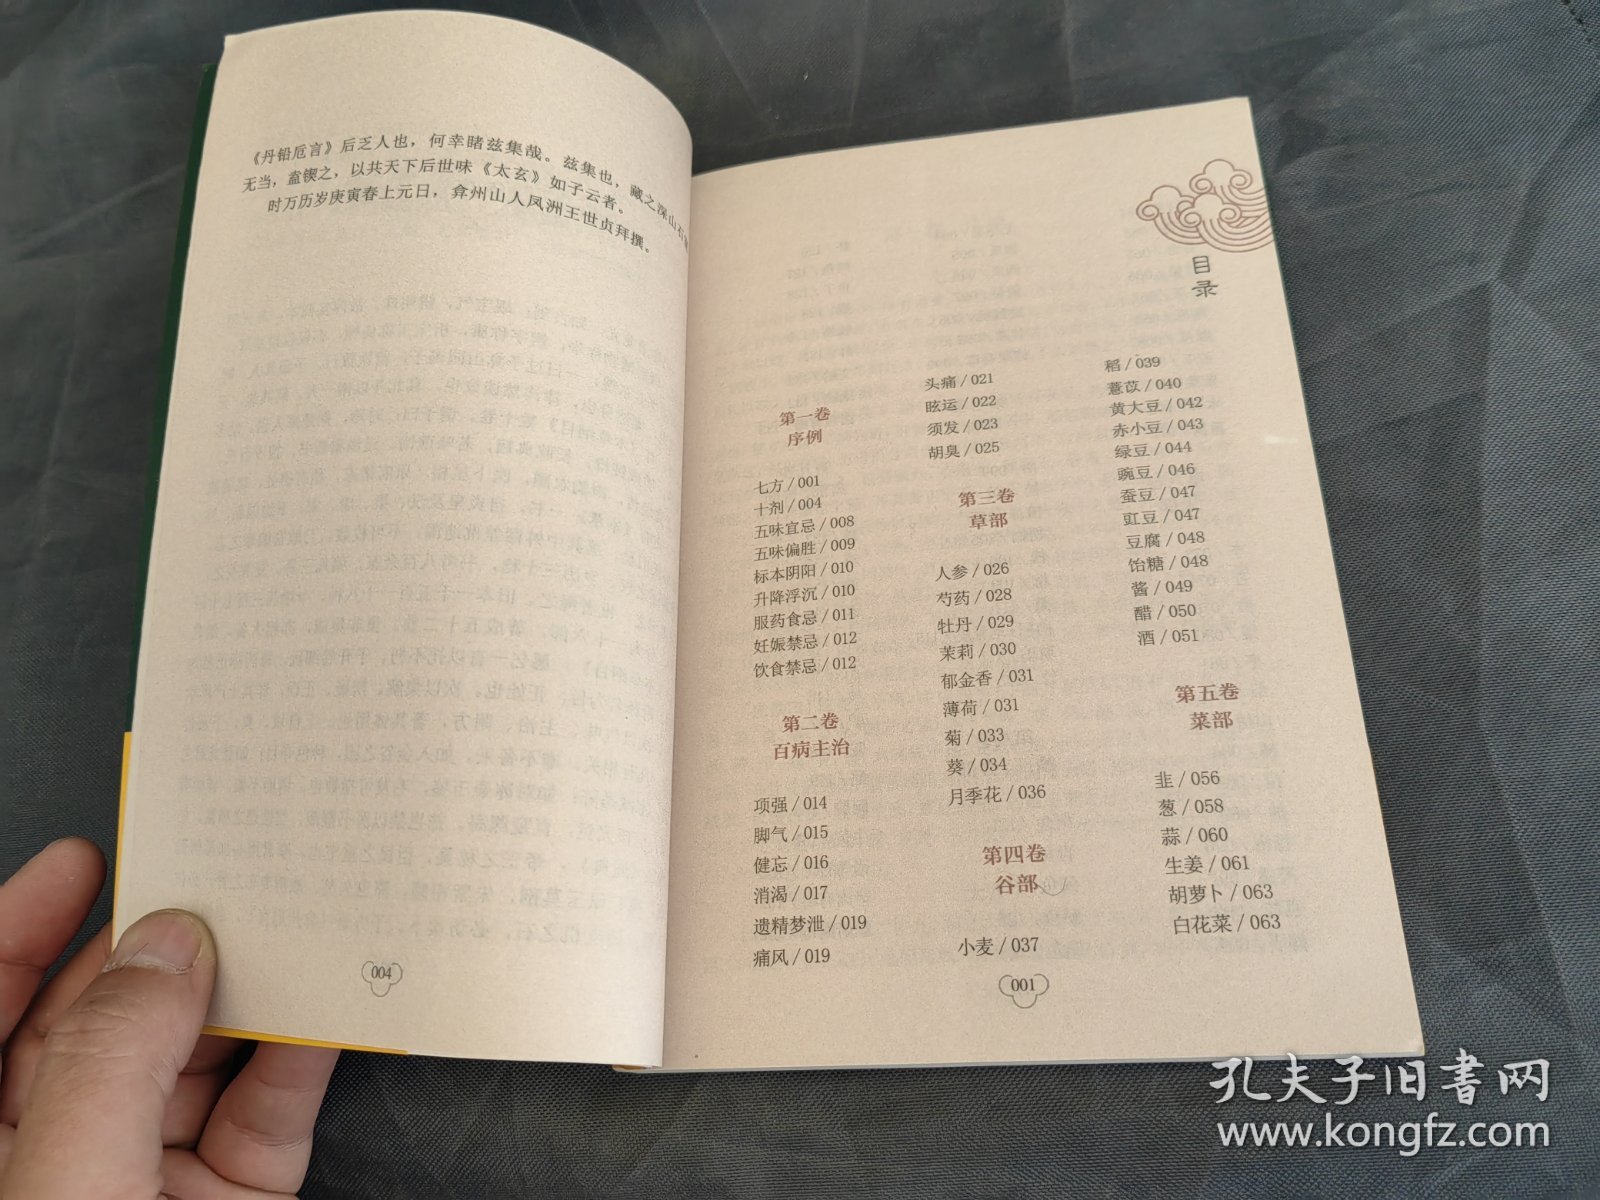 《丹铅卮言》后乏人也，何幸睹兹集哉。兹集也，藏之深山石
无当，盍锲之，以共天下后世味《太玄》如子云者。
时万历岁庚寅春上元日，弇州山人凤洲王世贞拜撰。
004
目录
第一卷
序例
七方/001
十剂/004
五味宜忌/008
五味偏胜/009
标本阴阳/010
升降浮沉/010
服药食忌/011
妊娠禁忌/012
饮食禁忌/012
第二卷
百病主治
项强/014
脚气/015
健忘/016
消渴/017
遗精梦泄/019
痛风/019
头痛/021
眩运/022
须发/023
胡臭/025
第三卷
草部
人参/026
芍药/028
牡丹/029
茉莉/030
郁金香/031
薄荷/031
菊/033
葵/034
月季花/036
第四卷
谷部
小麦/037
稻/039
薏苡/040
黄大豆/042
赤小豆/043
绿豆/044
豌豆/046
蚕豆/047
豇豆/047
豆腐/048
饴糖/048
酱/049
醋/050
酒/051
第五卷
菜部
韭/056
葱/058
蒜/060
生姜/061
胡萝卜/063
白花菜/063
001
孔夫子旧书网
www.kongfz.com